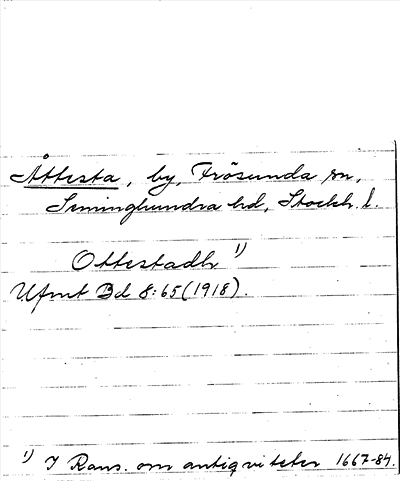 Åttesta, by, Frösunda sn,
Seminghundra hd, Stockh. l.
Ottestadh 1)
Ufmt Bd 8:65 (1918).
1) I Rans. om antiqviteter 1667-84.